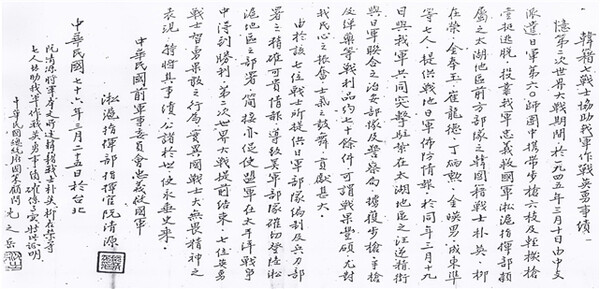 韓籍戰士協助我軍作戰英勇事績
憶第二次世界大戰期間，於一九四五年三月十日由中支
派遣日軍第六〇師團中携帶步槍六枝及輕機槍
壹挺逃脫，投靠我軍忠義救國軍淞滬指揮部
屬之太湖地區前方部隊之韓國籍戰士朴英、柳
在榮、金奉玉、崔龍德、丁炳勳、金暎男、成東準
等七人，提供戰地日軍佈防情報，於同年三月十九
日與我軍共同突擊駐紮在太湖地區之汪逆精銳
與日軍聯合之治安部隊及警察局，擄獲步槍、手槍
及洋藥等戰利品約七十餘件，可謂戰果豐碩，尤對
我民心之振奮士氣之鼓舞，貢獻甚大。
由於該七位戰士所提供日軍部隊編制及火力部
署之精確可貴情報，導致美軍部隊確切登陸淞
滬地區之部署，簡接亦促使盟軍在太平洋戰爭
中得到勝利，第二次世界大戰提前結束，七位英勇
戰士智勇果敢之行為，實異國戰士大無畏精神之
表現，特將其事蹟，公諸於世，使永垂史冊。
中華民國前軍事委員會忠義救國軍
淞滬指揮部指揮官阮清源
中華民國七十六年三月二十五日於台北
阮清源將軍本文所述韓籍戰士朴英柳在榮等
七人協助我軍作戰英勇事績確係事實特此証明
中華民國總統府國策顧問